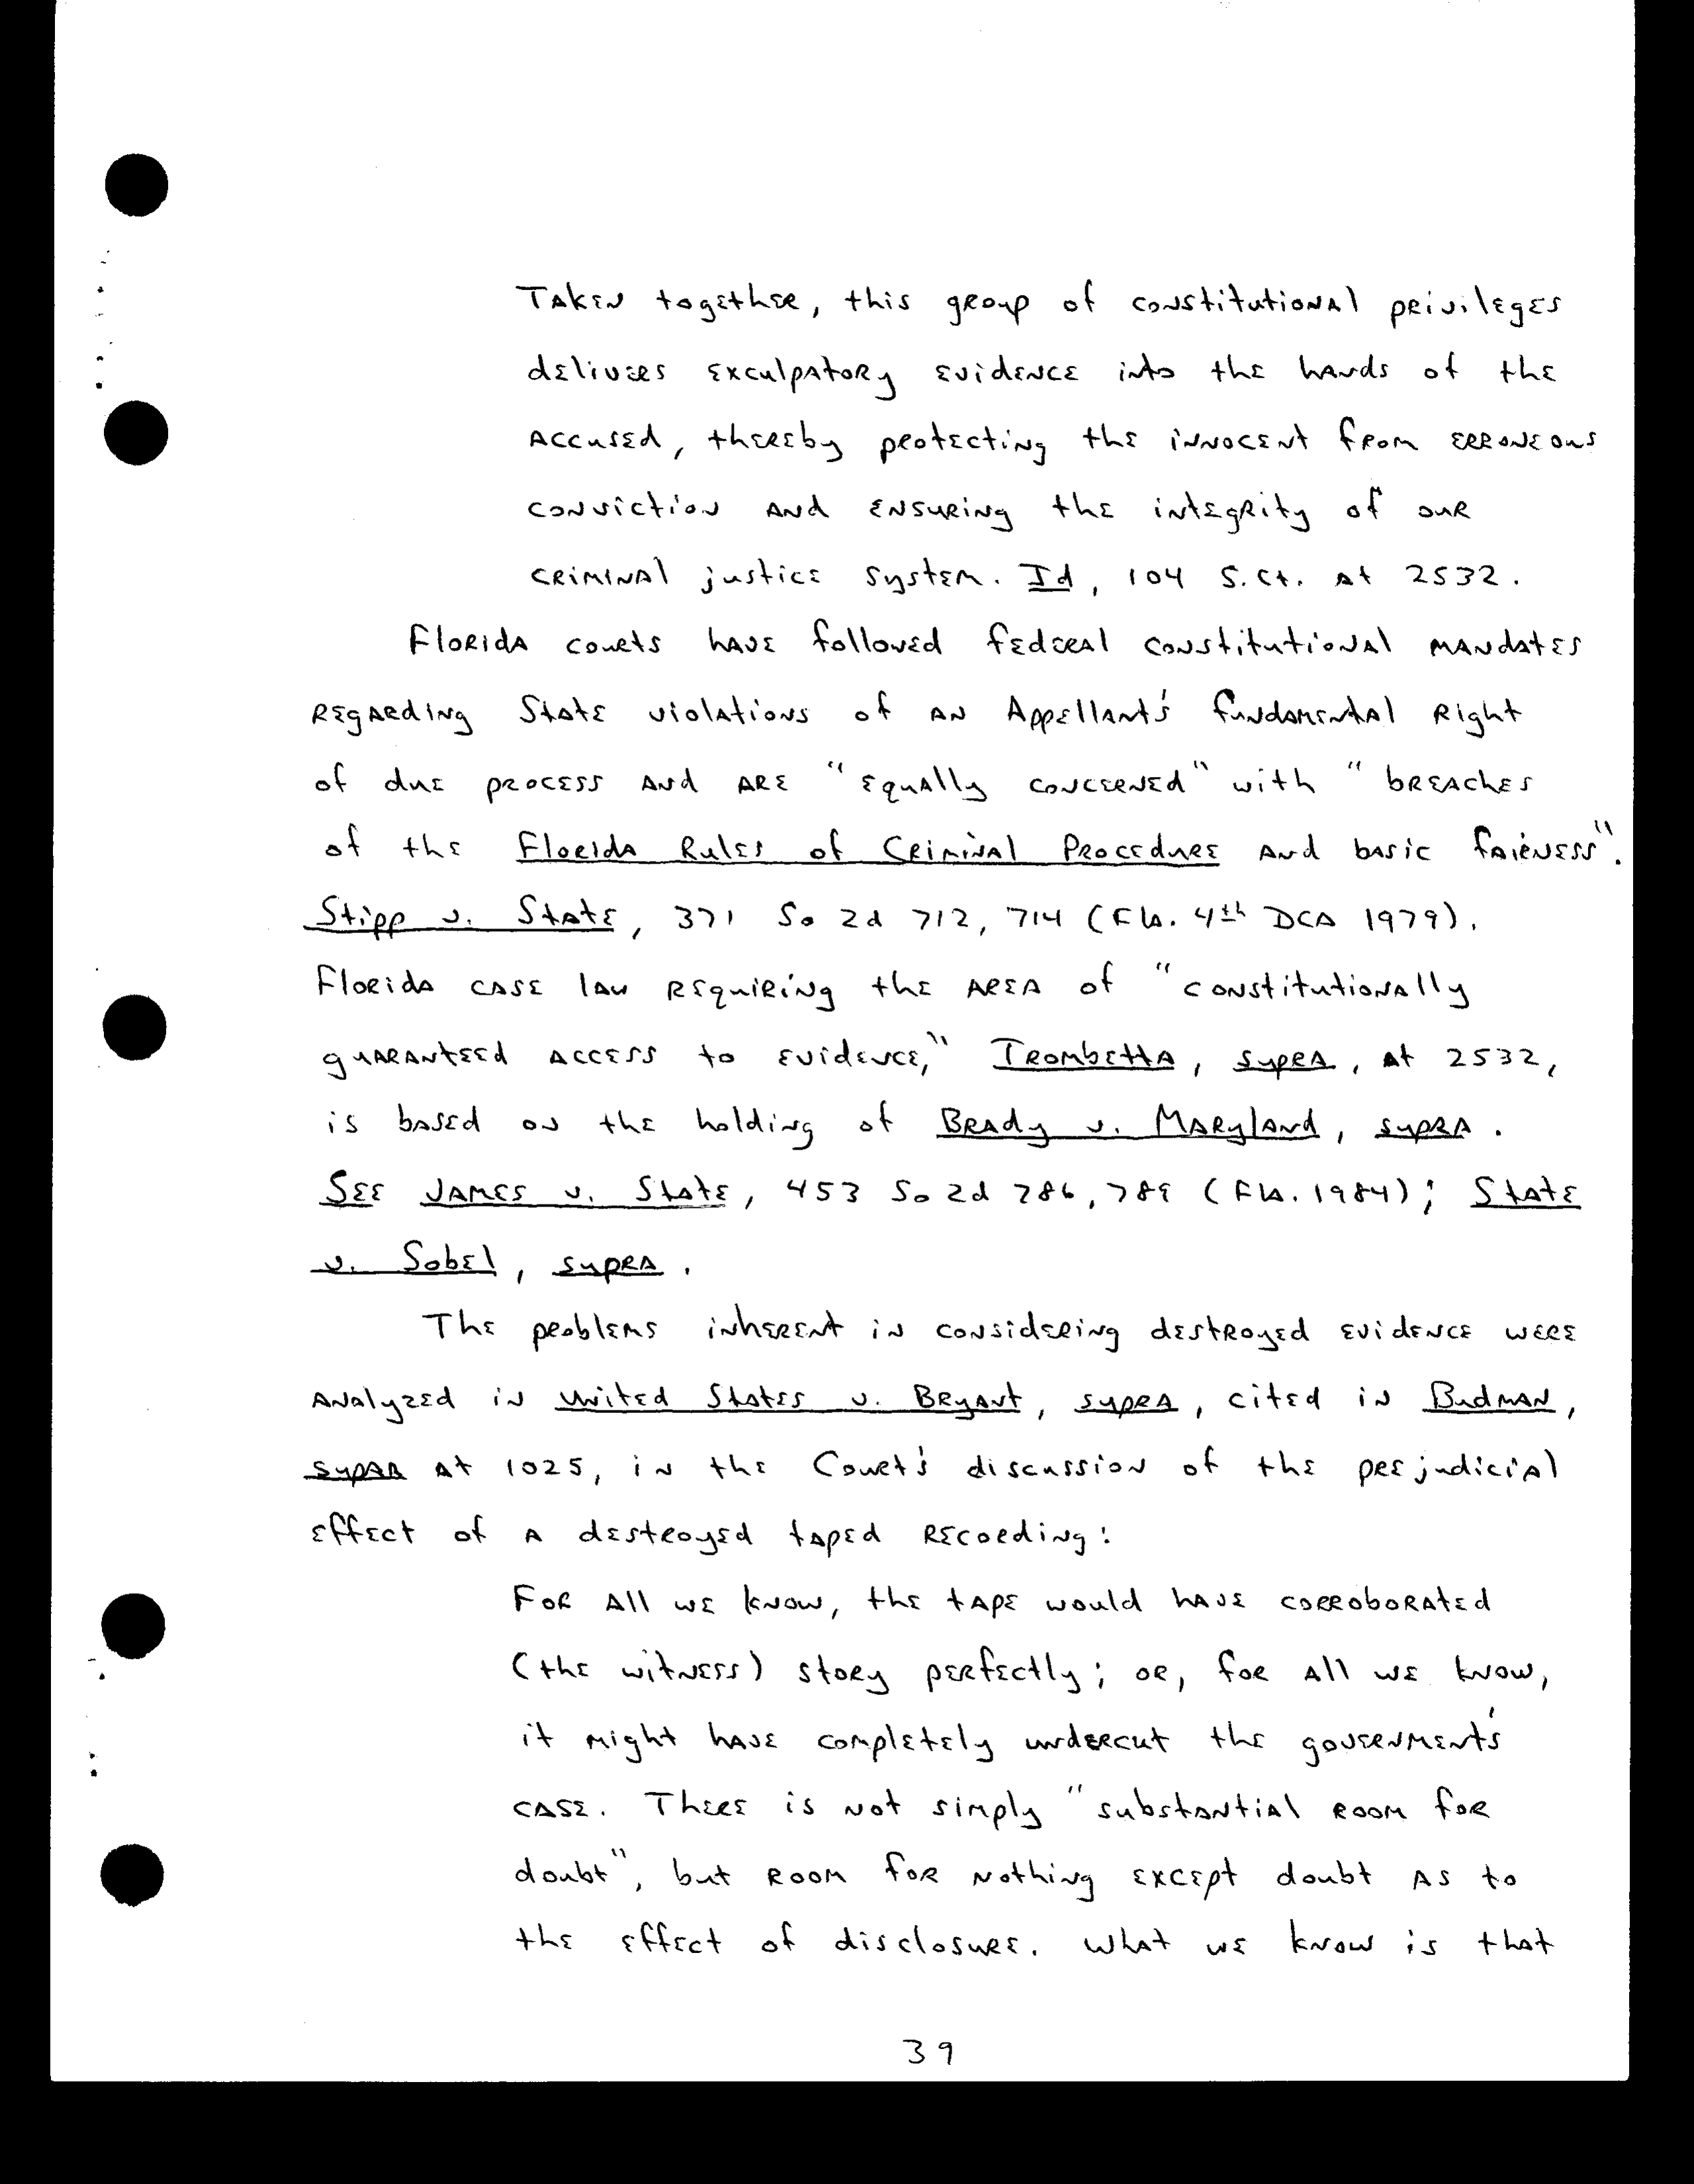 Taken together, this group of constitutional privileges
delivers exculpatory evidence into the hands of the
accused, thereby protecting the innocent from erroneous
conviction and ensuring the integrity of our
criminal justice system. Id, 104 S.Ct. at 2532.
Florida courts have followed federal constitutional mandates
regarding State violations of an Appellant's fundamental right
of due process and are "equally concerned" with "breaches
of the Florida Rules of Criminal Procedure and basic fairness".
Stipp v. State, 371 So 2d 712, 714 (Fla. 4th DCA 1979).
Florida case law requiring the area of "constitutionally
guaranteed access to evidence," Trombetta, supra, at 2532,
is based on the holding of Brady v. Maryland, supra.
See James v. State, 453 So 2d 786, 789 (Fla. 1984); State
v. Sobel, supra.
The problems inherent in considering destroyed evidence were
analyzed in United States v. Bryant, supra, cited in Budman,
supra at 1025, in the Court's discussion of the prejudicial
effect of a destroyed taped recording:
For all we know, the tape would have corroborated
(the witness) story perfectly; or, for all we know,
it might have completely undercut the government's
case. There is not simply "substantial room for
doubt", but room for nothing except doubt as to
the effect of disclosure. What we know is that
39